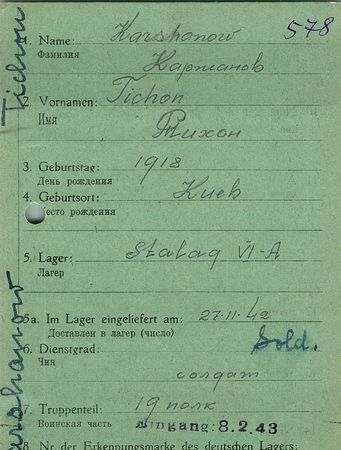 578
1. Name: Karshonow
Фамилия Каржанов
2. Vornamen: Tichon
Имя Тихон
3. Geburtstag: 1918
День рождения
4. Geburtsort: Киев
Место рождения
5. Lager: Stalag VI-A
Лагер
5a. Im Lager eingeliefert am: 27.11.42
Доставлен в лагер (число)
Sold.
6. Dienstgrad:
Чин солдат
7. Truppenteil: 19 полк
Воинская часть Eingang: 8.2.43
8. Nr. der Erkennungsmarke des deutschen Lagers:
Tichon